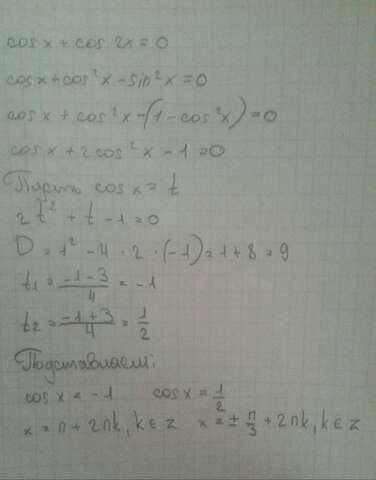 cos x + cos 2x = 0
cos x + cos²x - sin²x = 0
cos x + cos²x - (1 - cos²x) = 0
cos x + 2cos²x - 1 = 0
Пусть cos x = t
2t² + t - 1 = 0
D = 1² - 4 · 2 · (-1) = 1 + 8 = 9
t₁ = \frac{-1-3}{4} = -1
t₂ = \frac{-1+3}{4} = \frac{1}{2}
Подставляем:
cos x = -1 cos x = \frac{1}{2}
x = π + 2πk, k ∈ z x = ± \frac{π}{3} + 2πk, k ∈ z